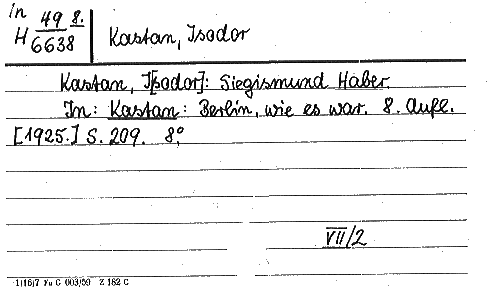 In
H 49 8.
6638
Kastan, Isodor
Kastan, I[sodor]: Siegismund Haber.
In: Kastan: Berlin, wie es war. 8. Aufl.
[1925.] S. 209. 8°.
VII/2
1/16/7 Fu G 003/59 Z 182 C